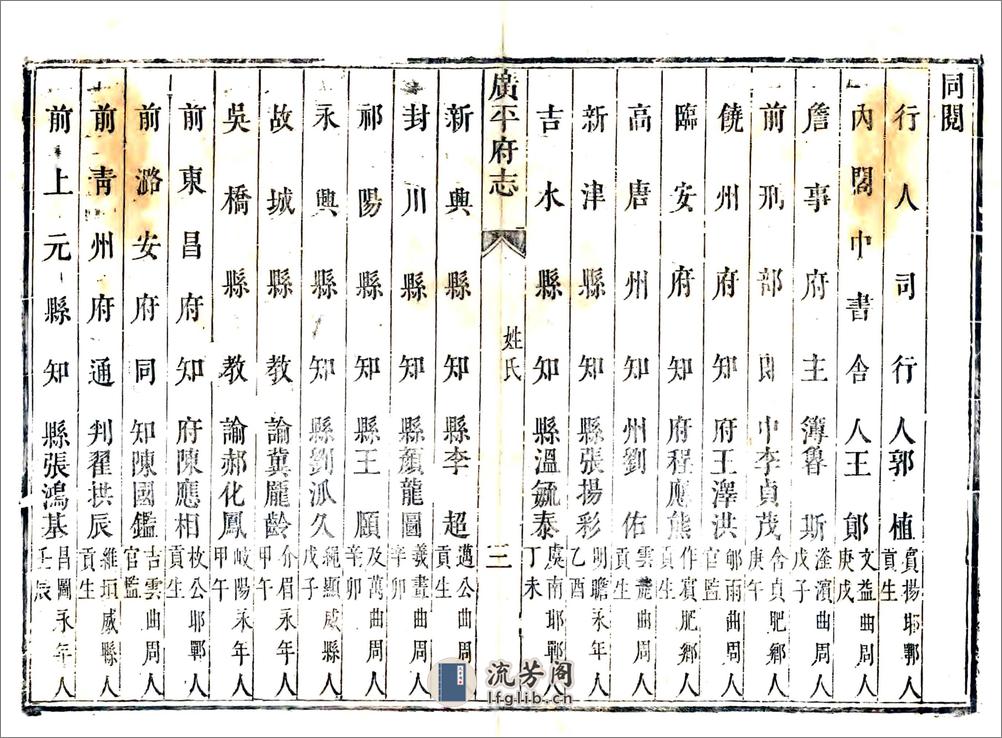 同閱
行人司行人郭植賓揚貢生邯鄲人
內閣中書舍人王䢵文益庚戌曲周人
詹事府主簿魯斯滏濱戊子曲周人
前刑部郎中李貞茂含貞庚午肥鄉人
饒州府知府王澤洪鄇雨官監曲周人
臨安府知府程應熊作賓貢生肥鄉人
高唐州知州劉佑雲麓貢生曲周人
新津縣知縣張揚彩明瞻乙酉永年人
吉水縣知縣溫毓泰虞南丁未邯鄲人
廣平府志
姓氏
三
新興縣知縣李超邁公貢生曲周人
封川縣知縣顏龍圖羲畫辛卯曲周人
祁陽縣知縣王頤及萬辛卯曲周人
永興縣知縣劉泒久繩顯戊子威縣人
故城縣教諭冀龐齡介眉甲午永年人
吳橋縣教諭郝化鳳岐陽甲午永年人
前東昌府知府陳應相枚公貢生邯鄲人
前潞安府同知陳國鑑吉雲官監曲周人
前青州府通判翟拱辰維垣貢生威縣人
前上元縣知縣張鴻基昌圖壬辰永年人
流芳阁
lfglib.cn